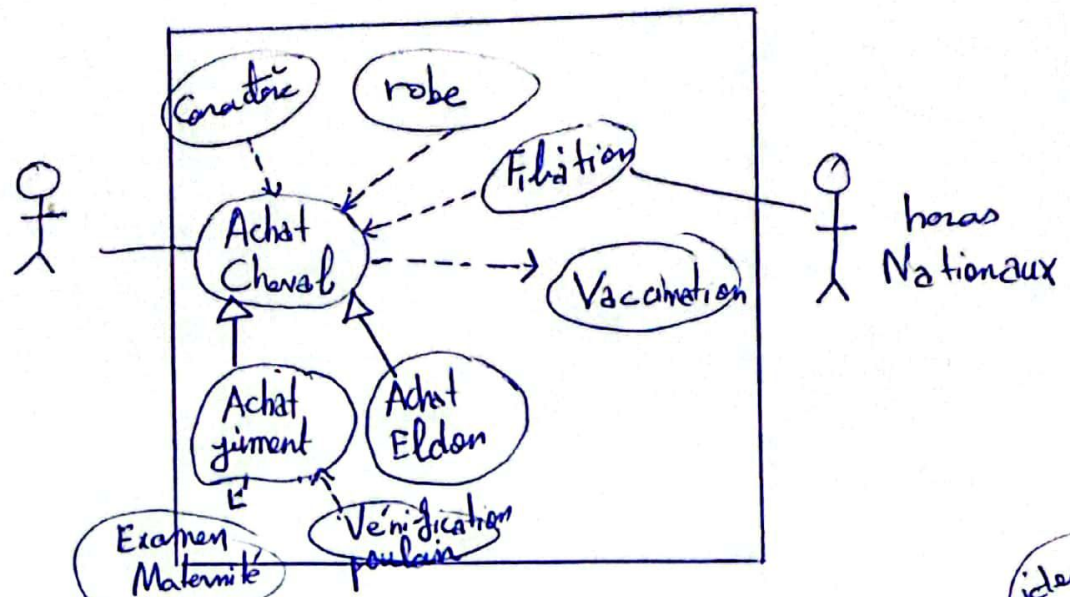 Caractère
robe
Filiation
Achat
Cheval
Vaccination
haras
Nationaux
Achat
jument
Achat
Eldon
Examen
Maternité
Vérification
poulain
ide